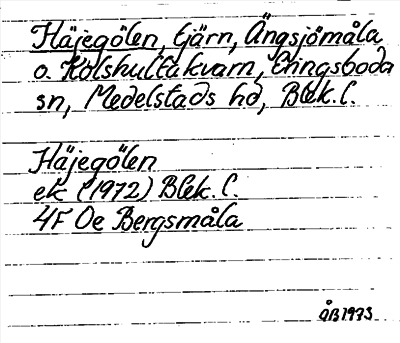 Häjegölen, tjärn, Ängsjömåla
o. Kölshultakvarn, Eringsboda
sn, Medelstads hd, Blek. l.
Häjegölen
ek (1972) Blek. l.
4F 0e Bergsmåla
ÅB 1973